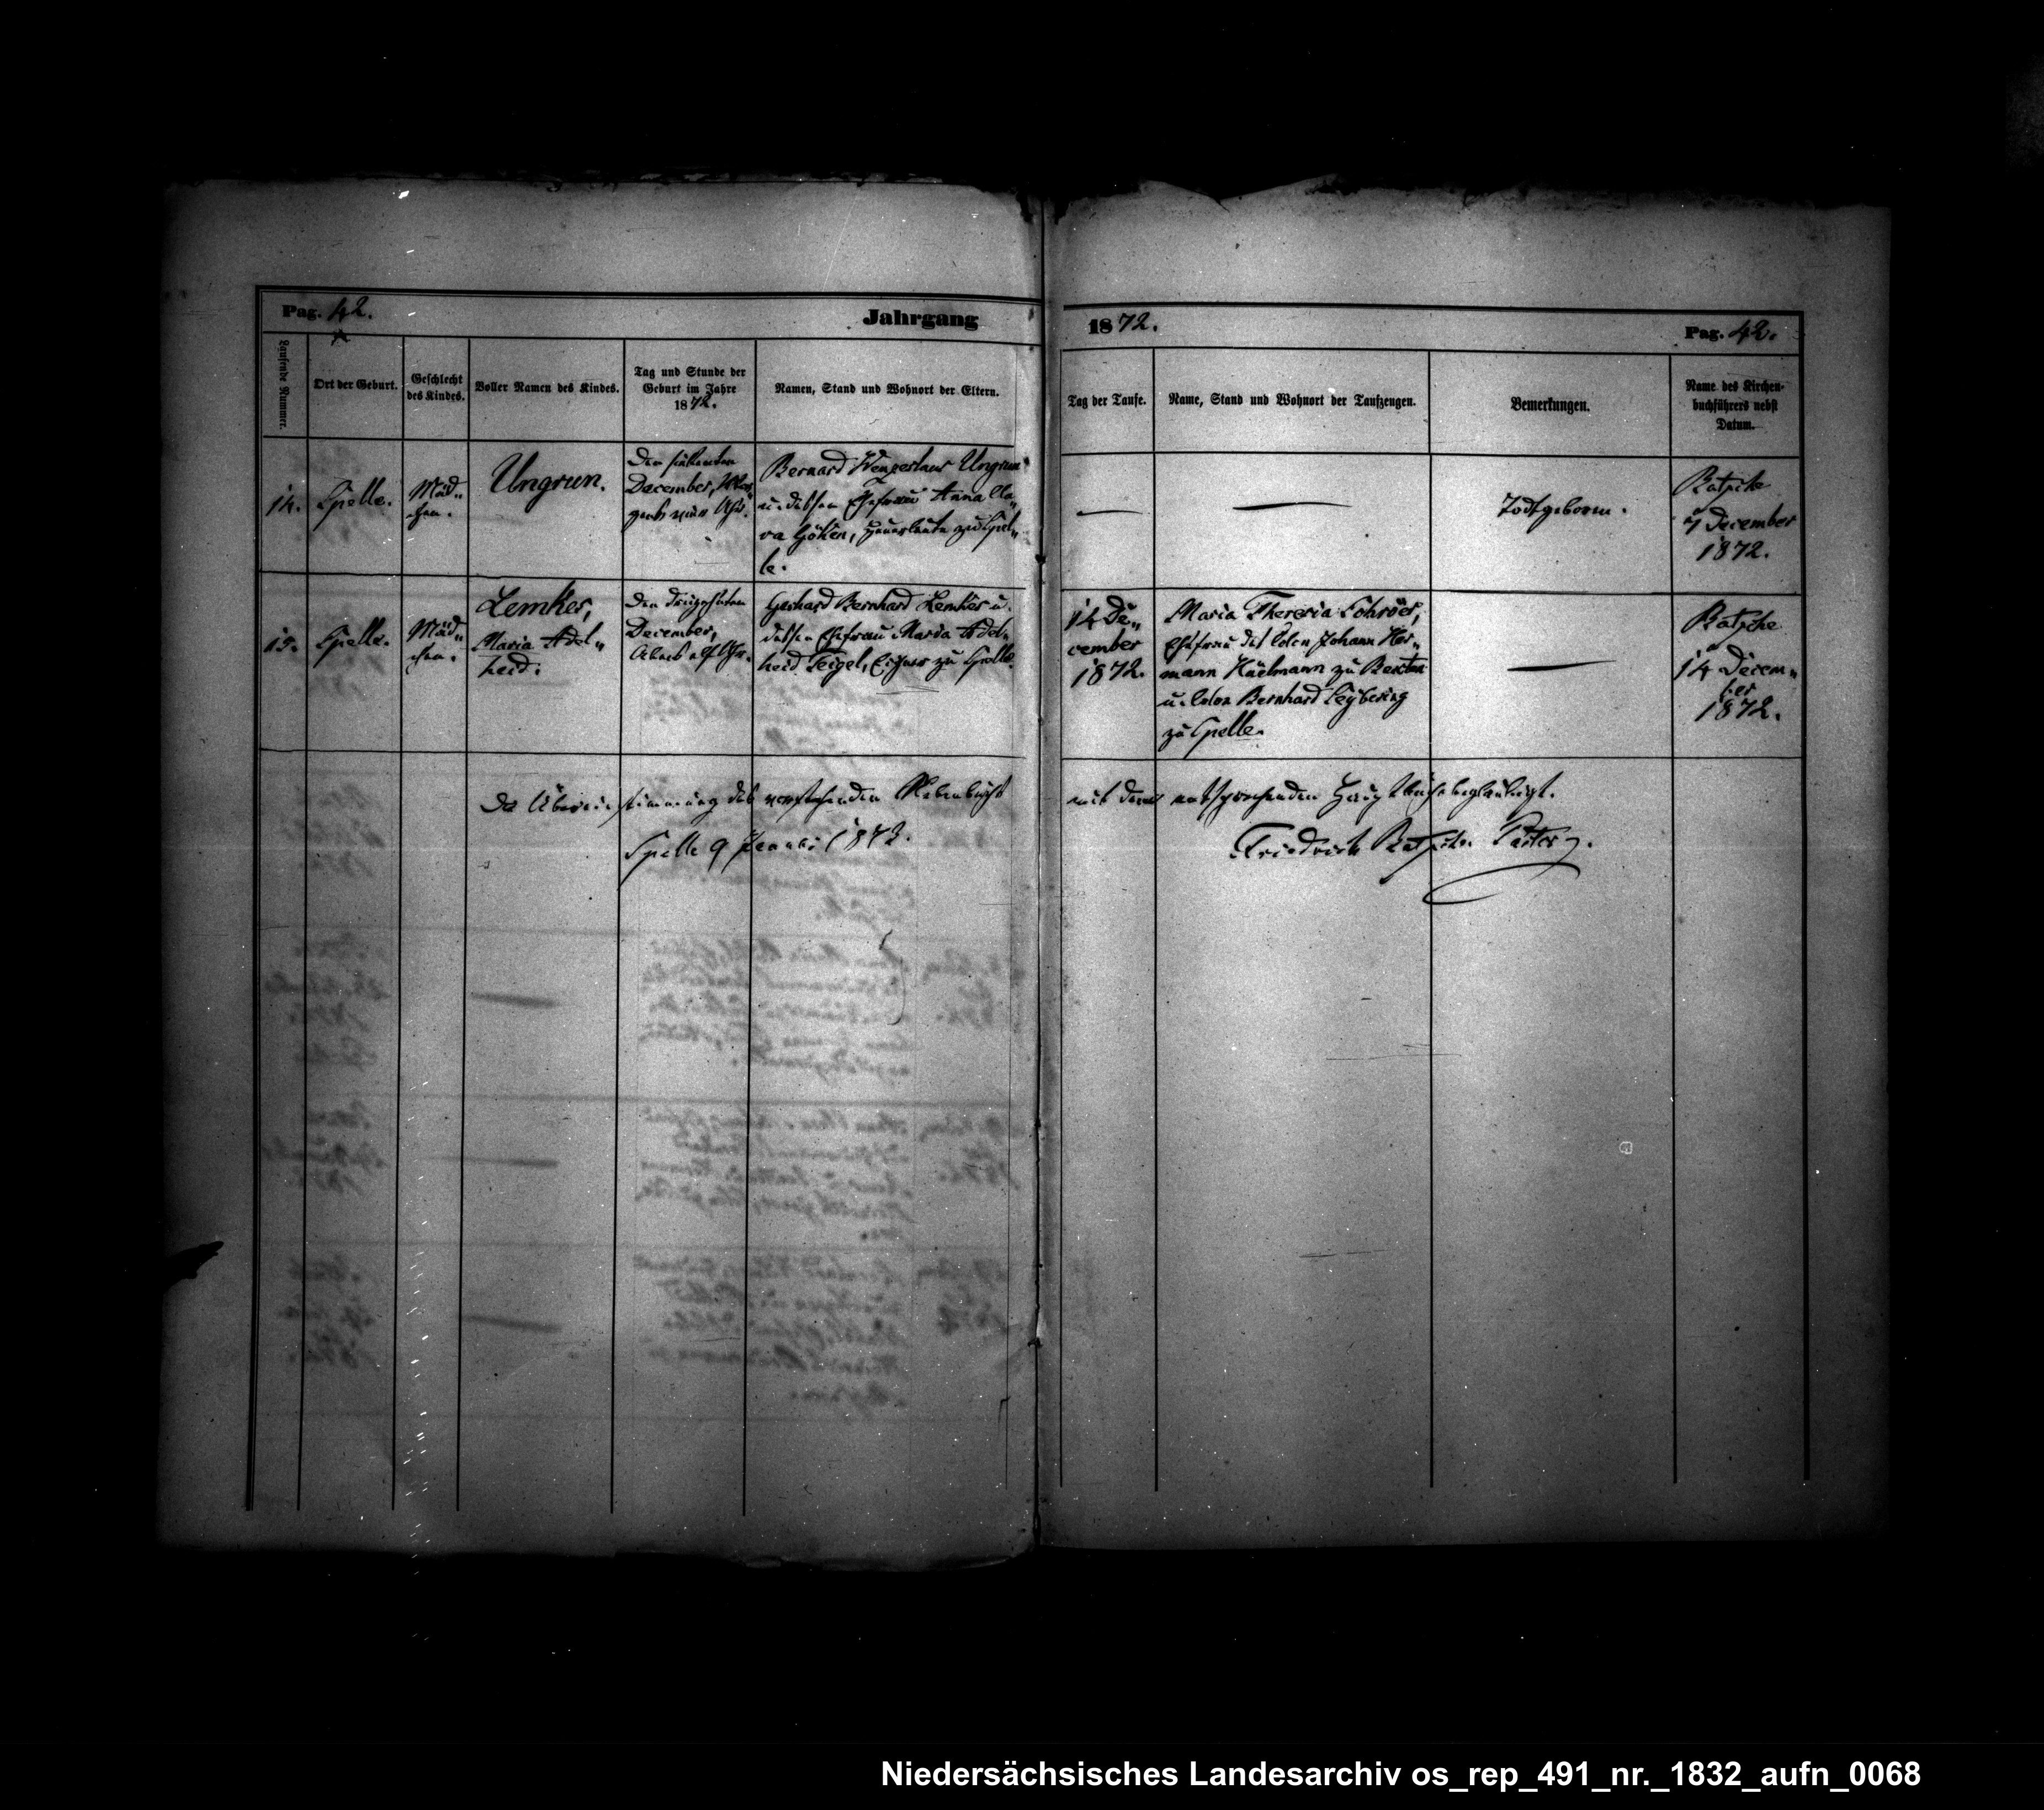 Pag. 42.
Jahrgang
1872.
Pag. 42.
Laufende Nummer.
Ort der Geburt.
Geschlecht
des Kindes.
Voller Namen des Kindes.
Tag und Stunde der
Geburt im Jahre
1872.
Namen, Stand und Wohnort der Eltern.
Tag der Taufe.
Name, Stand und Wohnort der Taufzeugen.
Bemerkungen.
Name des Kirchen-
buchführers nebst
Datum.
14.
Spelle.
Mäd-
chen.
Ungrun.
Den siebenten
December, Mor-
gens neun Uhr.
Bernard Wenzeslaus Ungrun
u. dessen Ehefrau Anna Cla-
ra Göken, Heuerleute zu Spel-
le.
—
—
Todtgeboren.
Batsche
7 December
1872.
15.
Spelle.
Mäd-
chen.
Lemker,
Maria Adel-
heid.
Den dreizehnten
December,
Abends elf Uhr.
Gerhard Bernhard Lemker u.
dessen Ehefrau Maria Adel-
heid Teigel, Eigner zu Spelle.
14 De-
cember
1872.
Maria Theresia
Ehefrau des Colon Johann Her-
mann zu
u. Colon Bernhard
zu Spelle.
—
Batsche
14 Decem-
ber
1872.
Die Übereinstimmung des vorstehenden Nebenbuchs
mit dem entsprechenden Hauptbuche beglaubigt.
Spelle 9 Januar 1873.
Friedrich Batsche. Pastor.
Niedersächsisches Landesarchiv os_rep_491_nr._1832_aufn_0068